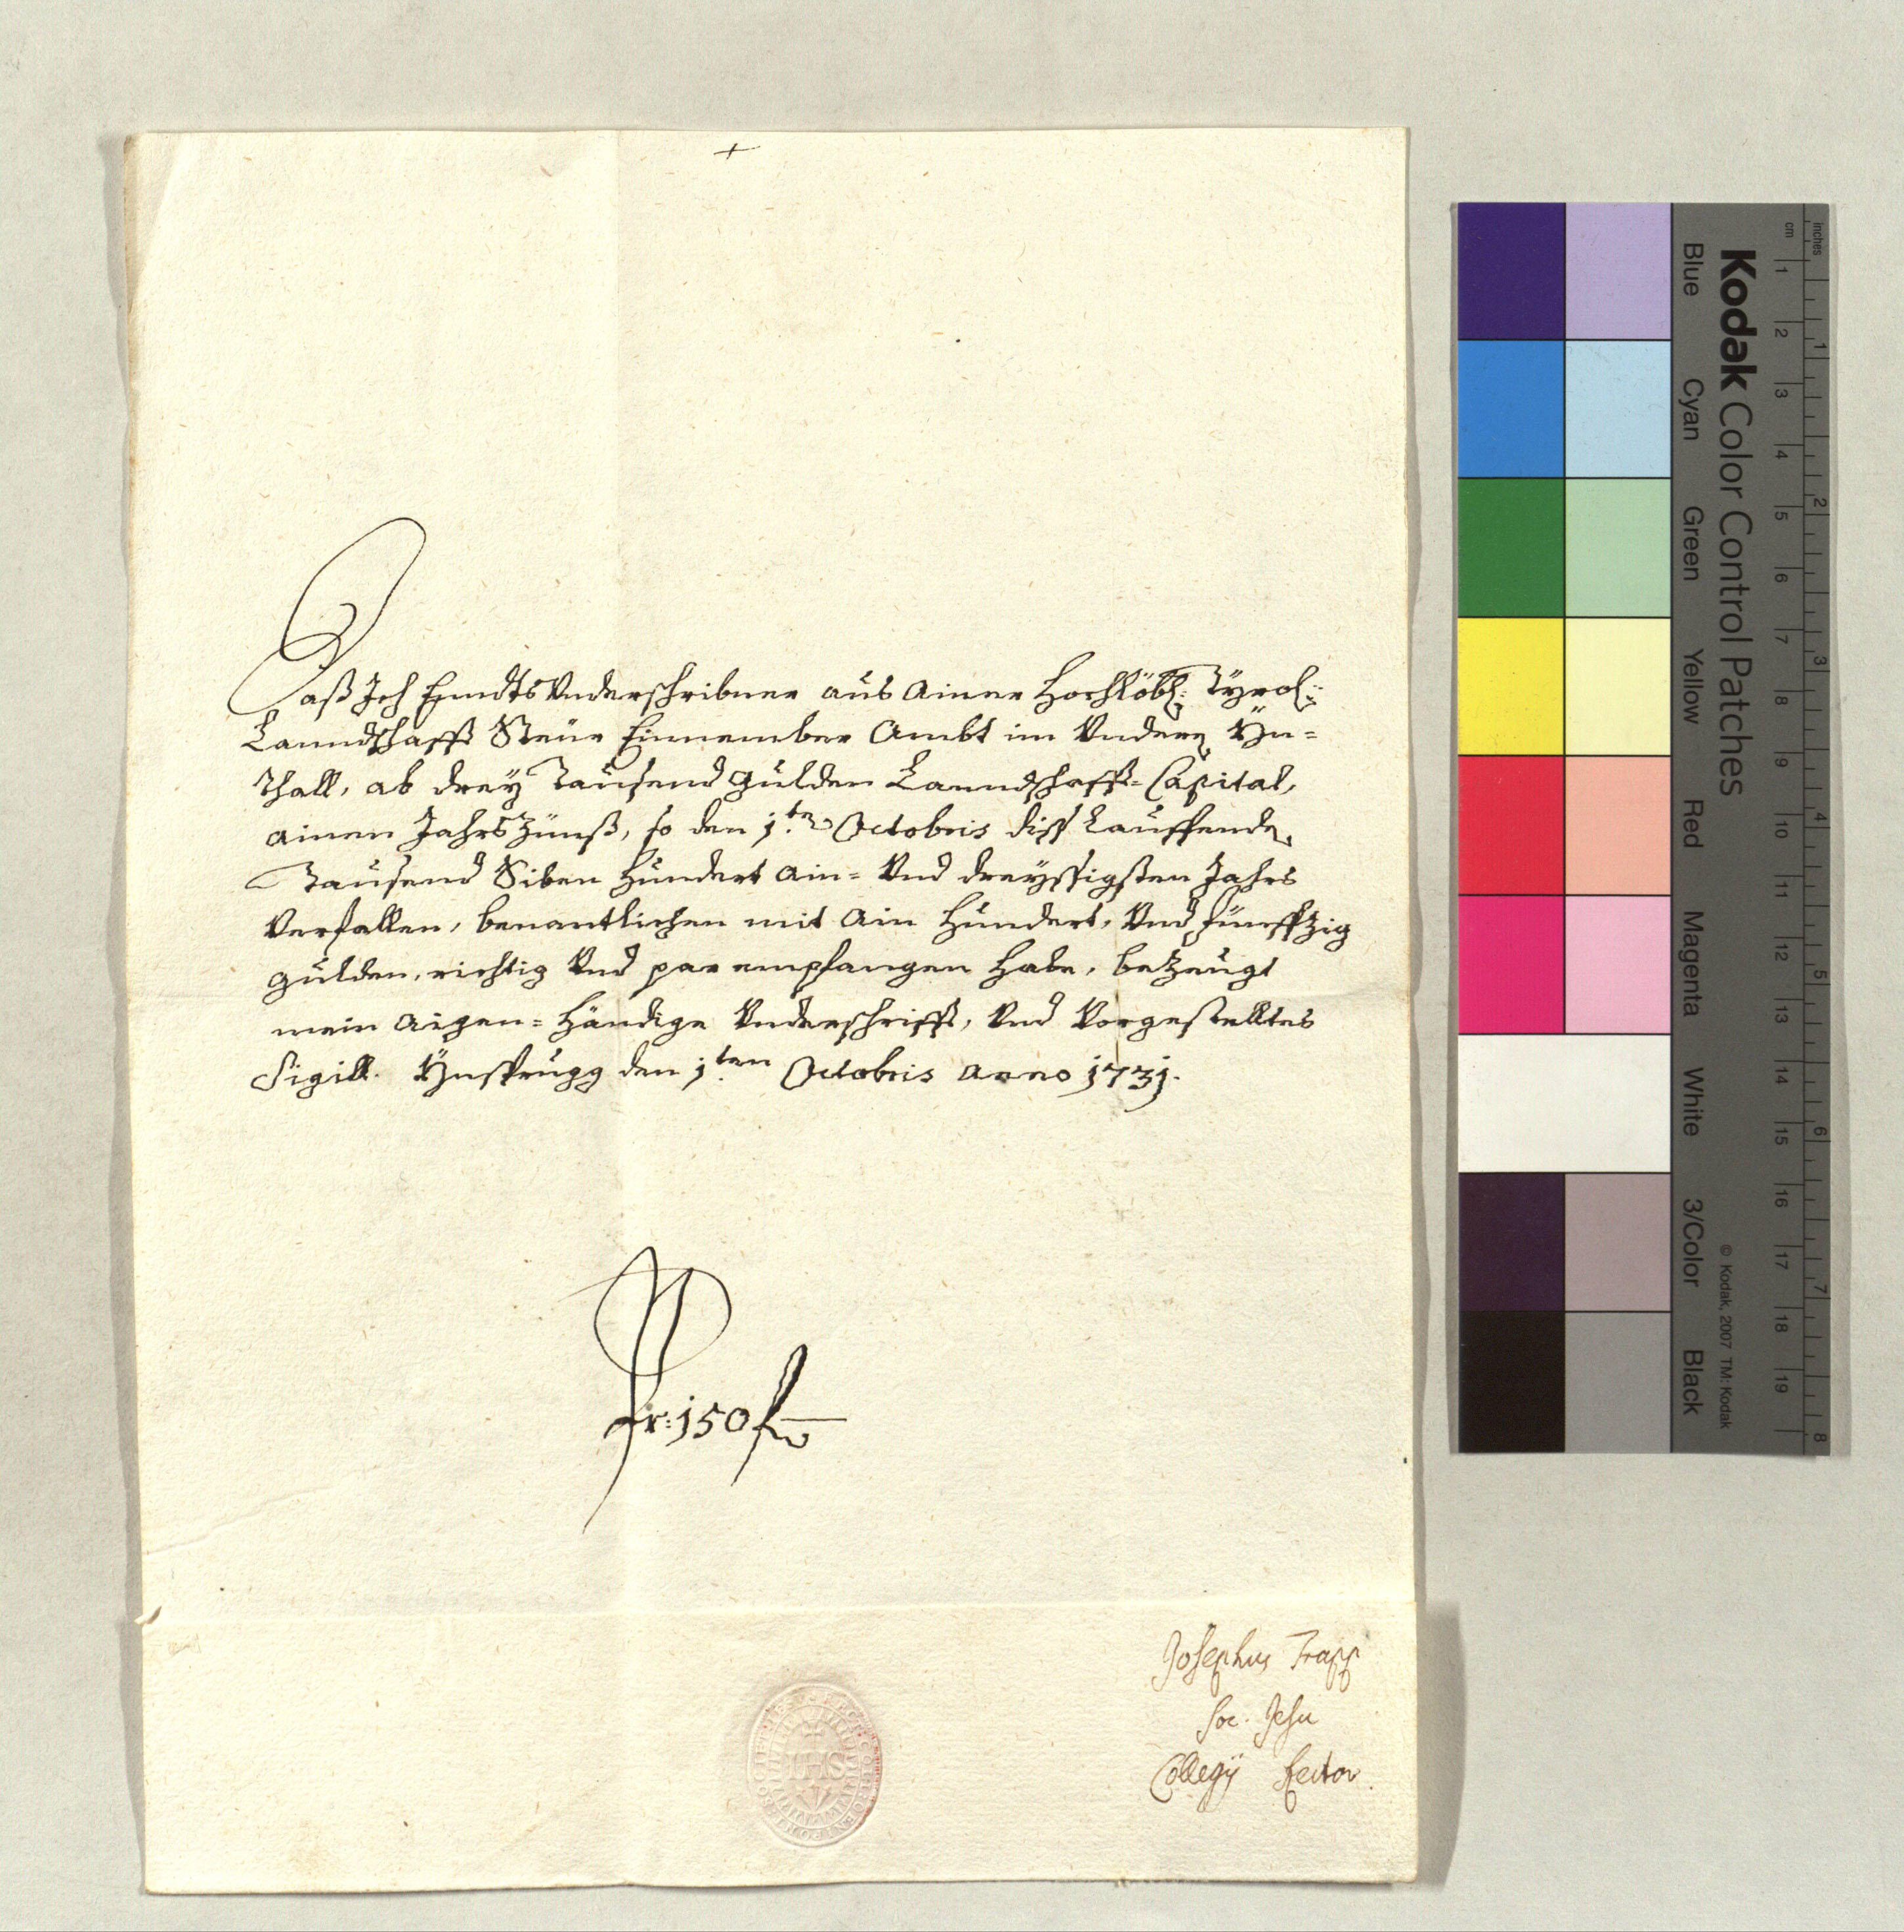 +
Daß Ich Enndts Underschribner aus Ainer Hochlöbl: Tyrol:
Lanndtschafft Steür Einnember Ambt im Undern Yn=
thall, ab drey Tausend Gulden Lanndtschafft=Capital,
ainen Jahrs Zünß, so den 1.ten Octobris diß Lauffenden
Tausend Siben Hundert Ain= Und dreyssigsten Jahrs
Verfallen, benantlichen mit Ain Hundert, Und Fünffzig
Gulden, richtig Und par empfangen habe, bezeugt
mein Aigen=händige Underschrifft, Und Vorgestelltes
Sigill. Ynsprugg den 1.ten Octobris Anno 1731.
Pr: 150 fl
Josephus Trapp
Soc. Jesu
Collegÿ Rector.
IHS
Kodak Color Control Patches
© Kodak, 2007 TM: Kodak
Blue Cyan Green Yellow Red Magenta White 3/Color Black
inches 1 2 3 4 5 6 7 8
cm 1 2 3 4 5 6 7 8 9 10 11 12 13 14 15 16 17 18 19